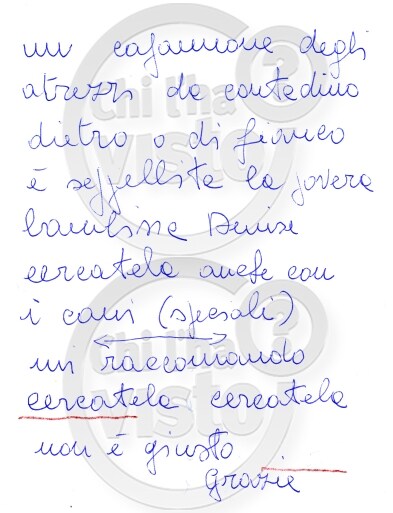 un capannone degli
atrezzi da contadino
dietro o di fianco
è seppellita la povera
bambina Denise
cercatela anche con
i cani (speciali)
mi raccomando
cercatela cercatela
non è giusto
Grazie
Chi l'ha visto?
Chi l'ha visto?